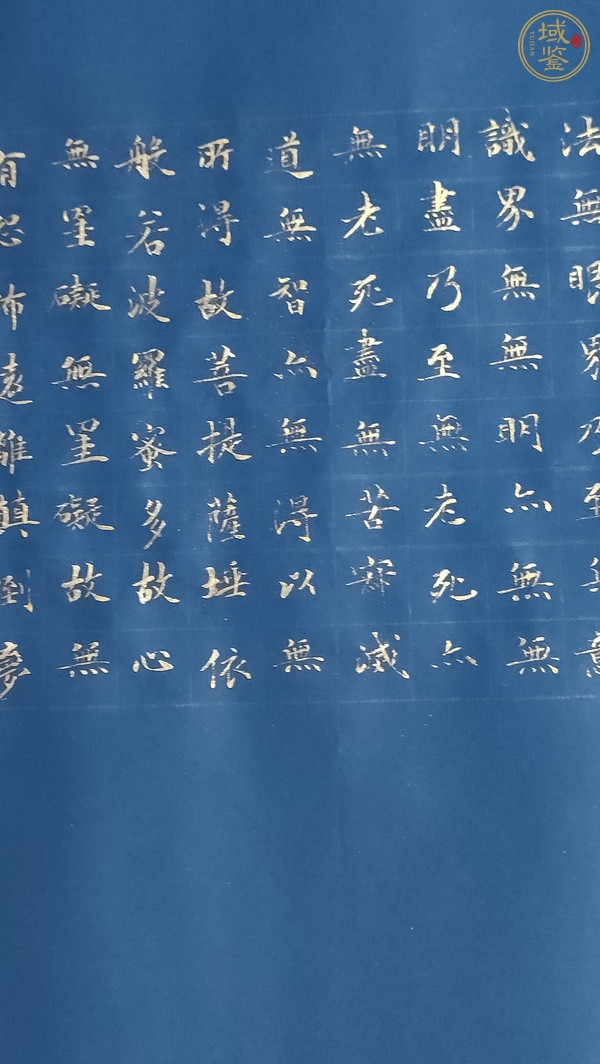 法無眼界乃至無意
識界無無明亦無無
明盡乃至無老死亦
無老死盡無苦滅
道無智亦無得以無
所得故菩提薩埵依
般若波羅蜜多故心
無罣礙無罣礙故無
有恐怖遠離顛倒夢
域鉴
YUJIAN